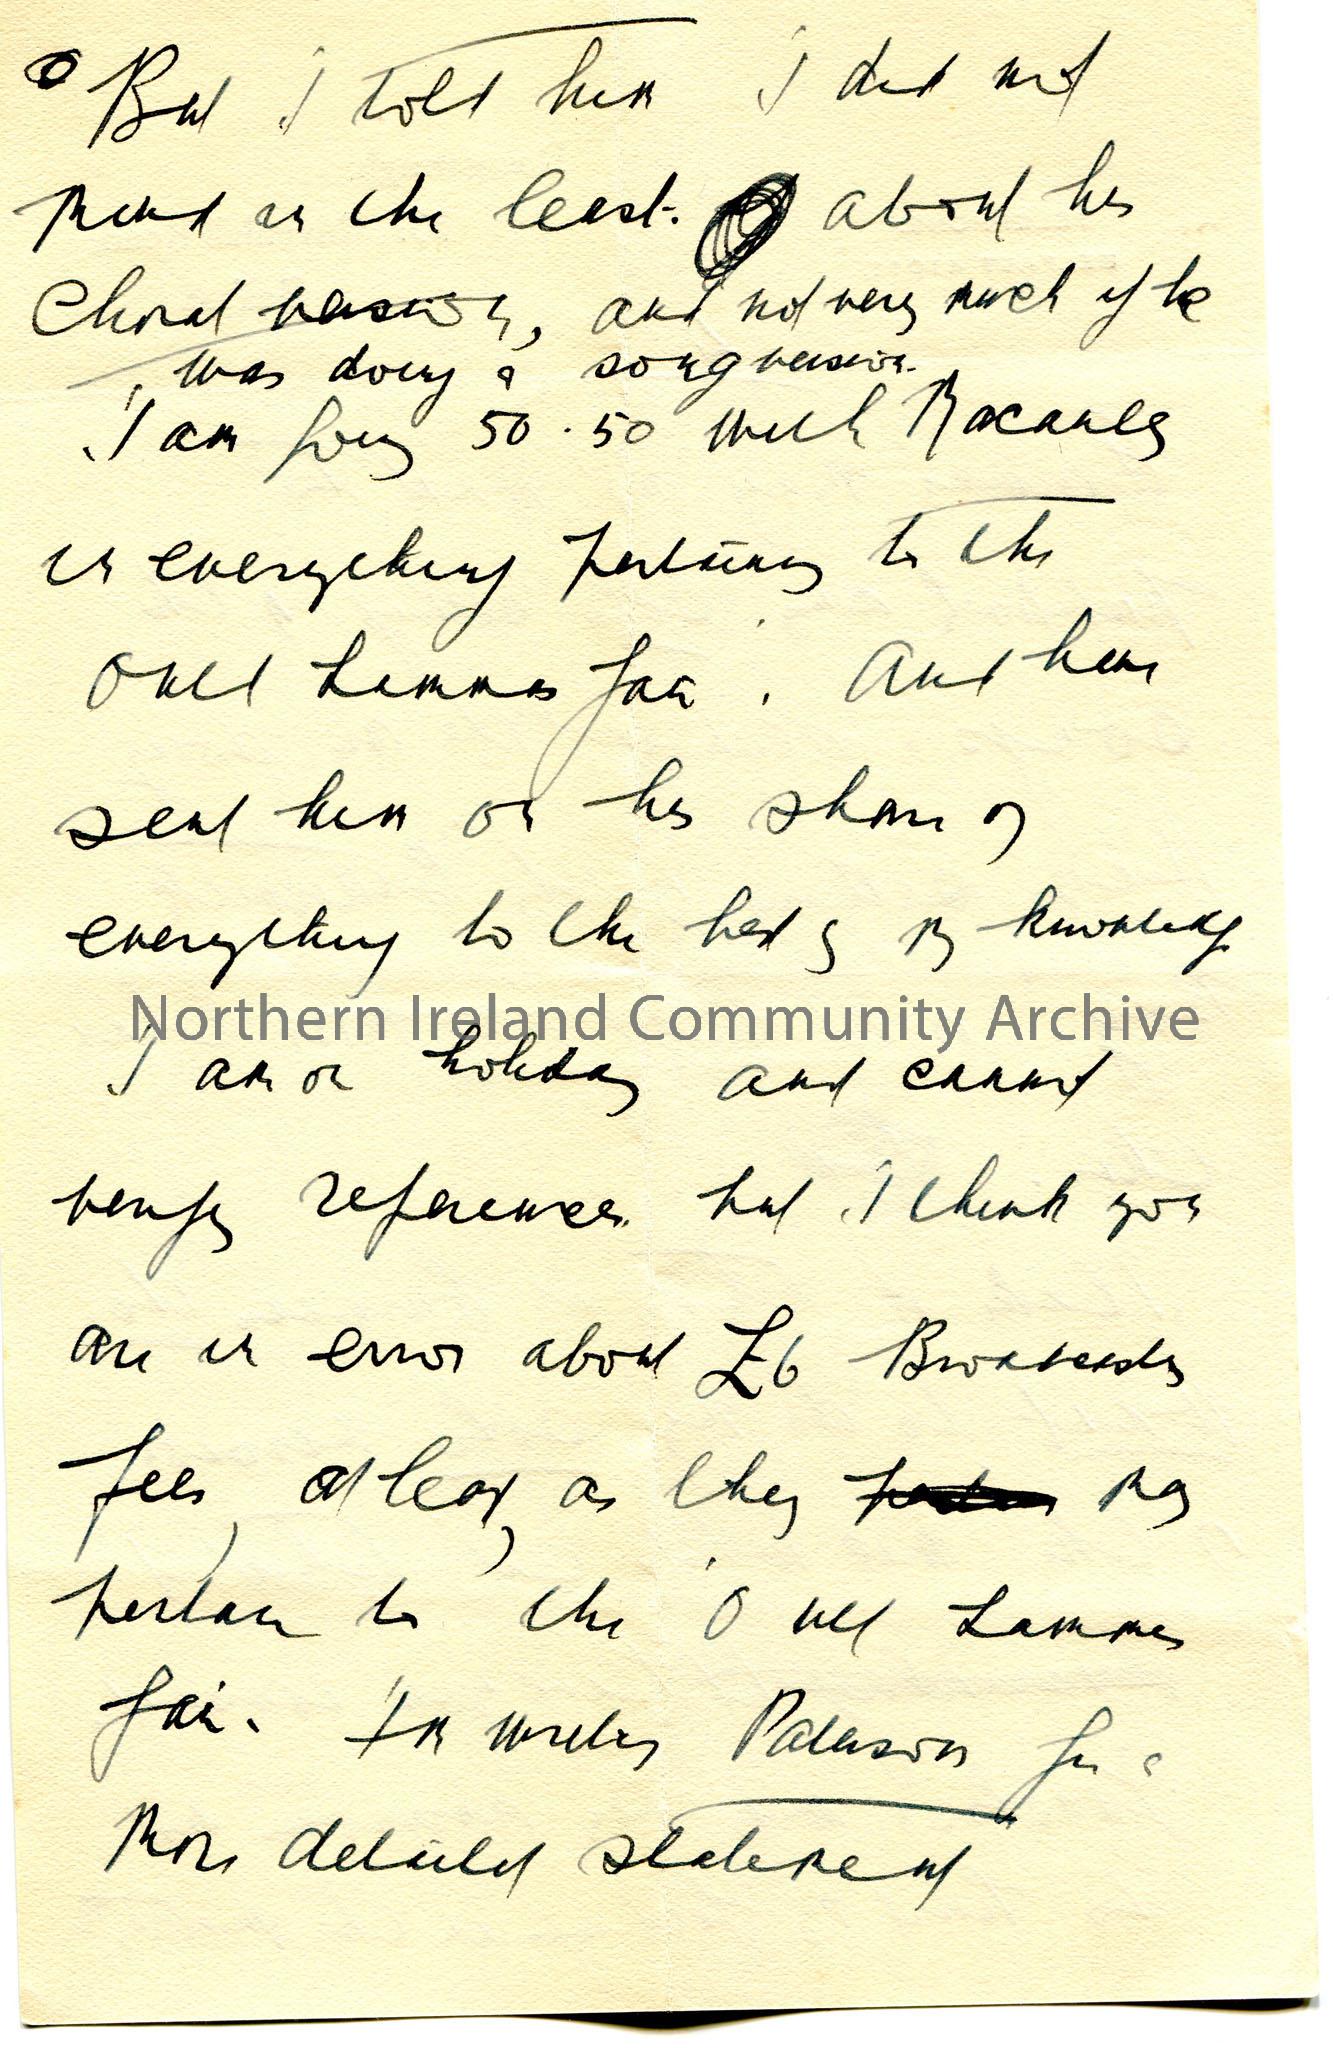 But I told him I did not
mind in the least. about his
Choral version, and not very much if he
was doing a song version.
I am going 50.50 with Macauley
in everything pertaining to the
'Ould Lammas Fair'. And have
sent him on his share of
everything to the best of my knowledge
Northern Ireland Community Archive
I am on holiday and cannot
verify references but I think you
are in error about £6 Broadcasting
fees, at least, as they may
pertain to the 'Ould Lammas
Fair. I'm writing Paterson for a
more detailed statement